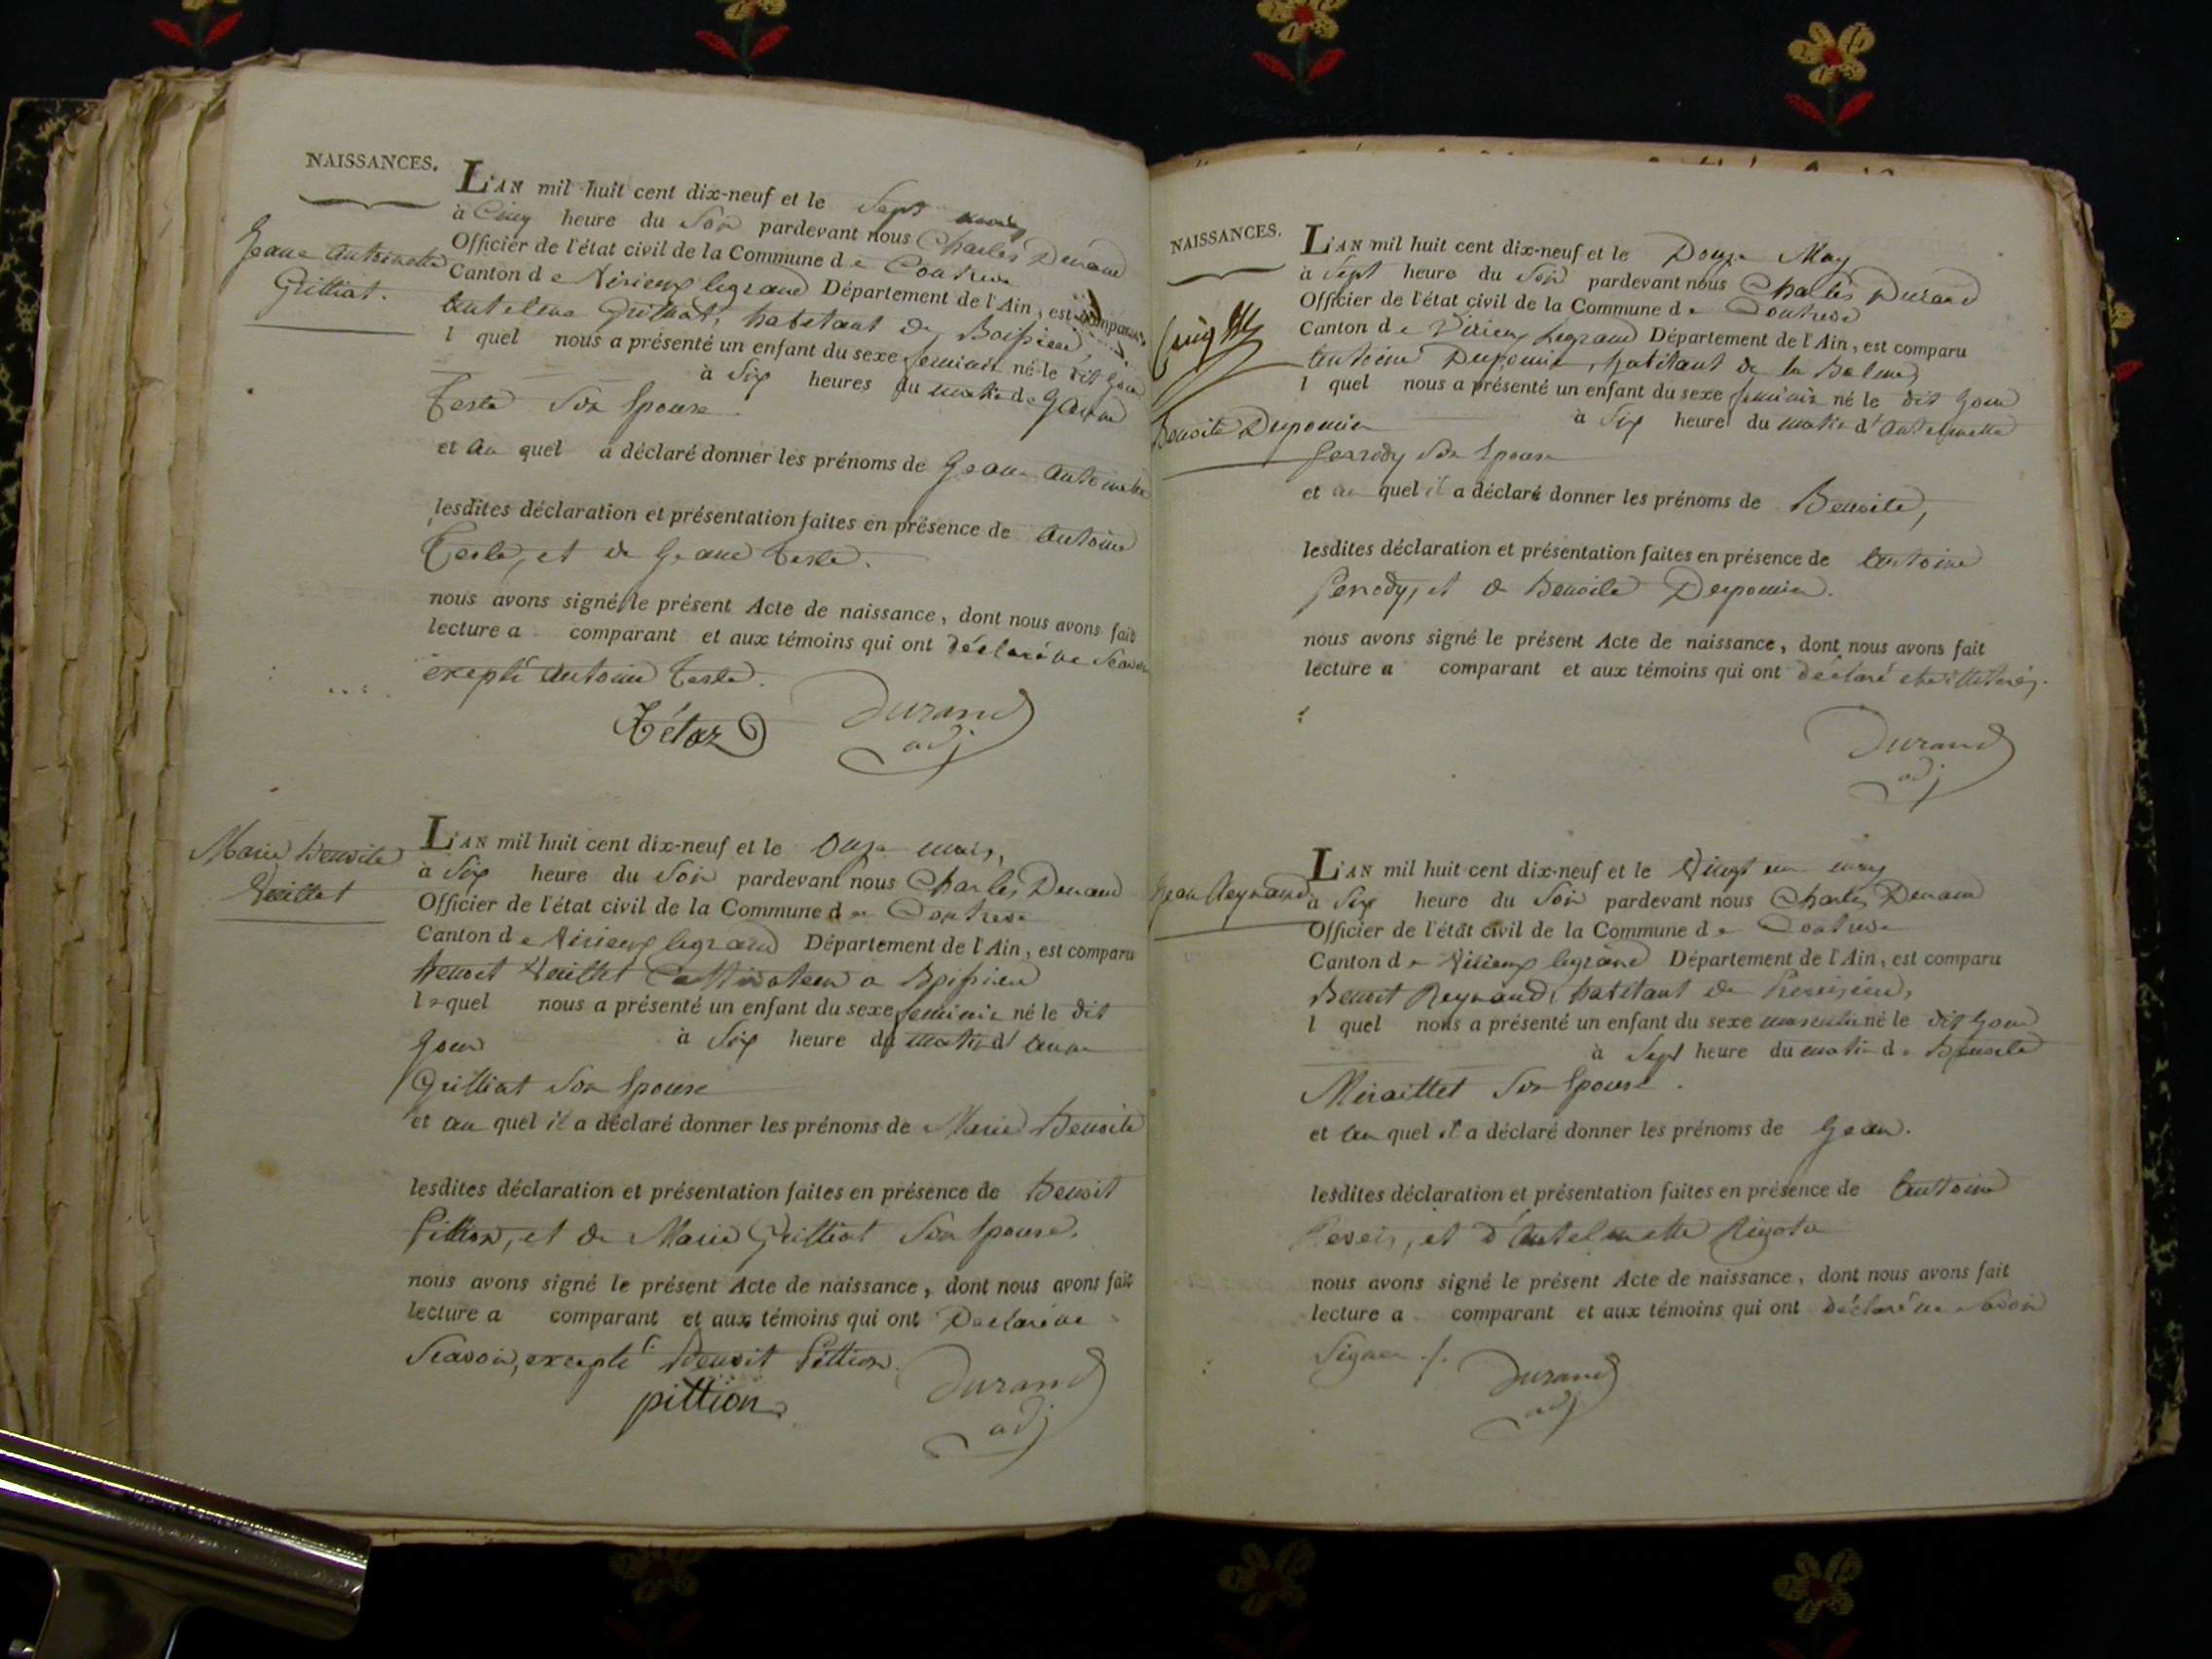 NAISSANCES.
Jeanne antoinette
Grilliat.
L'AN mil huit cent dix-neuf et le Sept mai
à Cinq heure du Soir pardevant nous Charles Durand
Officier de l'état civil de la Commune de Contrevoz
Canton de Virieux legrand Département de l'Ain, est comparu
antelme Grilliat, habitant de Boissieu,
l quel nous a présenté un enfant du sexe feminin né le dit Jour
à Six heures du matin de Jeanne
Teste Son Epouse
et au quel a déclaré donner les prénoms de Jeanne antoinette
lesdites déclaration et présentation faites en présence de antoine
Teste, et de Jeanne Teste.
nous avons signé le présent Acte de naissance, dont nous avons fait
lecture a comparant et aux témoins qui ont déclaré ne Scavoir
excepté antoine Teste.
Durand
adj
Marie Benoite
Vuillet
L'AN mil huit cent dix-neuf et le Onze mai,
à Six heure du Soir pardevant nous Charles Durand
Officier de l'état civil de la Commune de Contrevoz
Canton de Virieux legrand Département de l'Ain, est comparu
benoit Vuillet Cultivateur a Boissieu
lequel nous a présenté un enfant du sexe feminin né le dit
Jour à Six heure du matin d'anne
Grilliat Son Epouse
et au quel il a déclaré donner les prénoms de Marie Benoite
lesdites déclaration et présentation faites en présence de Benoit
Pittion, et de Marie Grilliat Son Epouse.
nous avons signé le présent Acte de naissance, dont nous avons fait
lecture a comparant et aux témoins qui ont Declaré ne
Scavoir, excepté Benoit Pittion.
pittion
Durand
adj
NAISSANCES.
Benoite Dupomier
L'AN mil huit cent dix-neuf et le Douze May
à Sept heure du Soir pardevant nous Charles Durand
Officier de l'état civil de la Commune de Contrevoz
Canton de Virieux Legrand Département de l'Ain, est comparu
antoine Dupomier, habitant de la Balme,
l quel nous a présenté un enfant du sexe feminin né le dit Jour
à Six heure du matin d'antelmette
Perrody Son Epouse
et au quel il a déclaré donner les prénoms de Benoite,
lesdites déclaration et présentation faites en présence de antoine
Perrody, et de Benoite Dupomier.
nous avons signé le présent Acte de naissance, dont nous avons fait
lecture a comparant et aux témoins qui ont déclaré
Durand
adj
Jean Reynaud
L'AN mil huit cent dix-neuf et le Vingt un may
à Six heure du Soir pardevant nous Charles Durand
Officier de l'état civil de la Commune de Contrevoz
Canton de Virieux legrand Département de l'Ain, est comparu
Benoit Reynaud, habitant de
l quel nous a présenté un enfant du sexe masculin né le dit Jour
à Sept heure du matin de Benoite
Miraillet Son Epouse.
et au quel il a déclaré donner les prénoms de Jean.
lesdites déclaration et présentation faites en présence de antoine
et d'antelmette
nous avons signé le présent Acte de naissance, dont nous avons fait
lecture a comparant et aux témoins qui ont déclaré ne Savoir
Signer ./.
Durand
adj